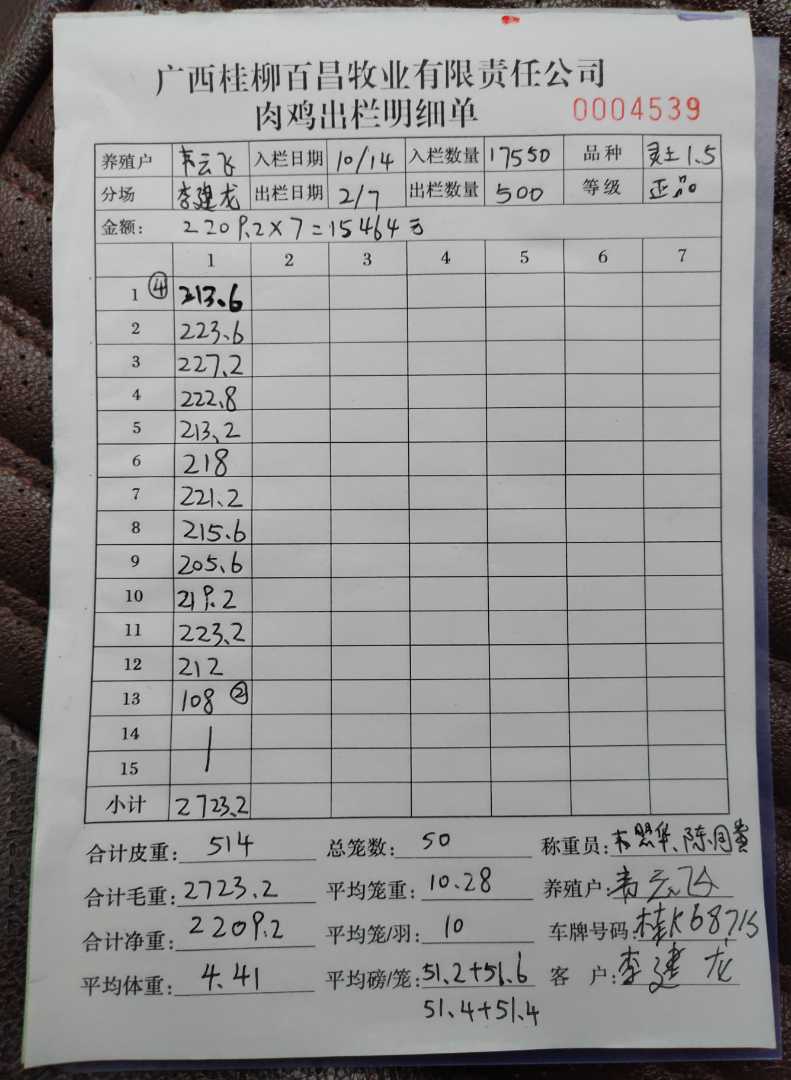 广西桂柳百昌牧业有限责任公司
肉鸡出栏明细单 0004539
养殖户 韦云飞 入栏日期 10/14 入栏数量 17550 品种 灵土1.5
分场 李建龙 出栏日期 2/7 出栏数量 500 等级 正品
金额: 2209.2×7=15464元
1 2 3 4 5 6 7
1 ④ 213.6
2 223.6
3 227.2
4 222.8
5 213.2
6 218
7 221.2
8 215.6
9 205.6
10 219.2
11 223.2
12 212
13 108 ②
14
15
小计 2723.2
合计皮重: 514 总笼数: 50 称重员: 韦照华、陈国贵
合计毛重: 2723.2 平均笼重: 10.28 养殖户: 韦云飞
合计净重: 2209.2 平均笼/羽: 10 车牌号码: 桂K6871S
平均体重: 4.41 平均磅/笼: 51.2+51.6 客 户: 李建龙
51.4+51.4